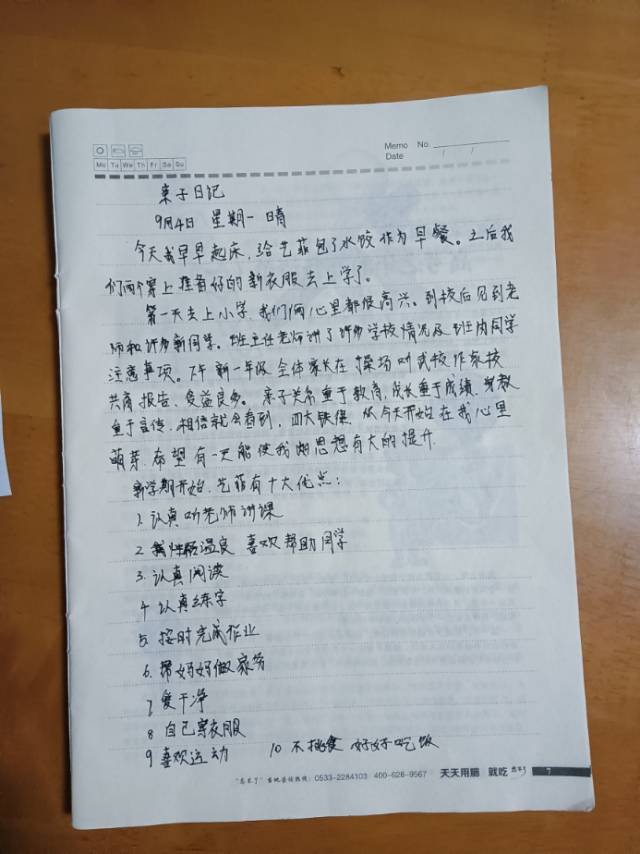 Memo No.
Date / /
Mo Tu We Th Fr Sa Su
亲子日记
9月4日 星期一 晴
今天我早早起床,给艺菲包了水饺作为早餐。之后我
们两个穿上准备好的新衣服去上学了。
第一天去上小学,我们俩心里都很高兴。到校后见到老
师和许多新同学。班主任老师讲了许多学校情况及班内同学
注意事项。下午新一年级全体家长在操场听武校作家校
共育报告、受益良多。亲子关系重于教育,成长重于成绩,身教
重于言传,相信就会看到,四大铁律 从今天开始在我心里
萌芽.希望有一天能使我的思想有大的提升.
新学期开始.艺菲有十大优点:
1.认真听老师讲课
2 性格温良 喜欢帮助同学
3.认真阅读
4 认真练字
5 按时完成作业
6.帮妈妈做家务
7 爱干净
8 自己穿衣服
9 喜欢运动 10 不挑食 好好吃饭
"忘不了"客服营销热线:0533-2284103 400-626-9567 天天用脑 就吃忘不了 7